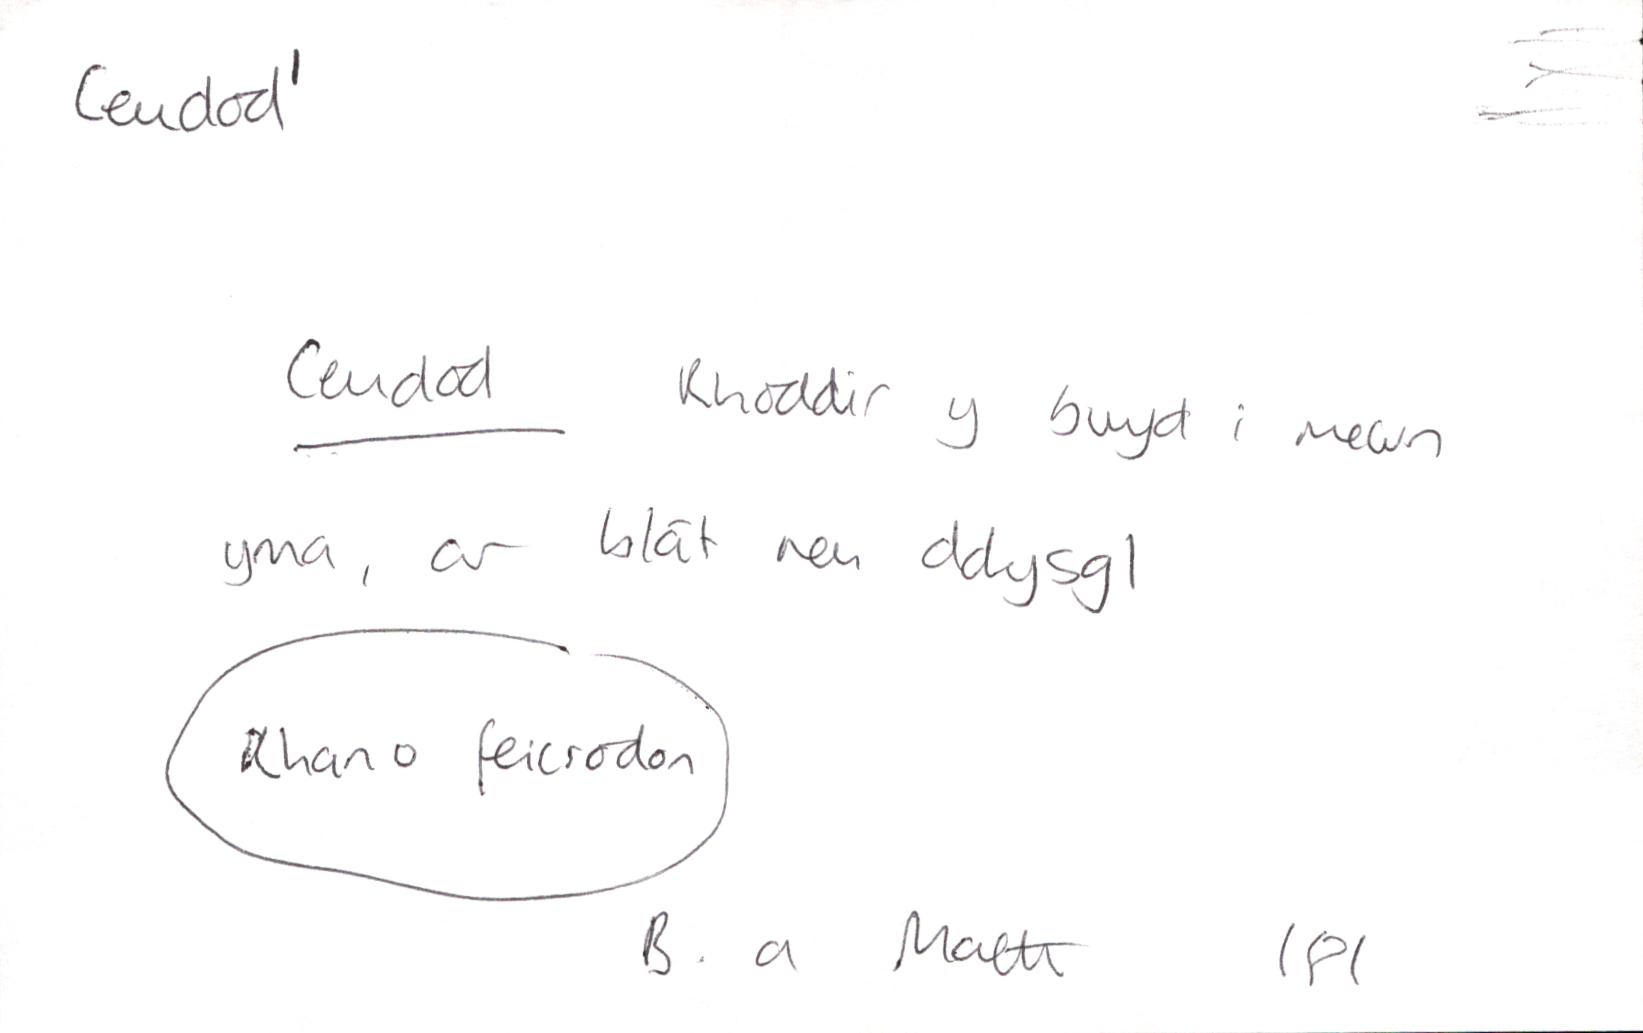 Ceudod'
Ceudod Rhoddir y bwyd i mewn
yma, ar blât neu ddysgl
Rhan o feicrodon
B. a Maeth